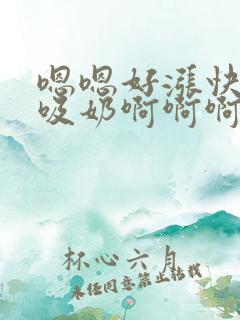 嗯嗯好涨快
吸奶啊啊啊
杯心六月
未经同意禁止转载